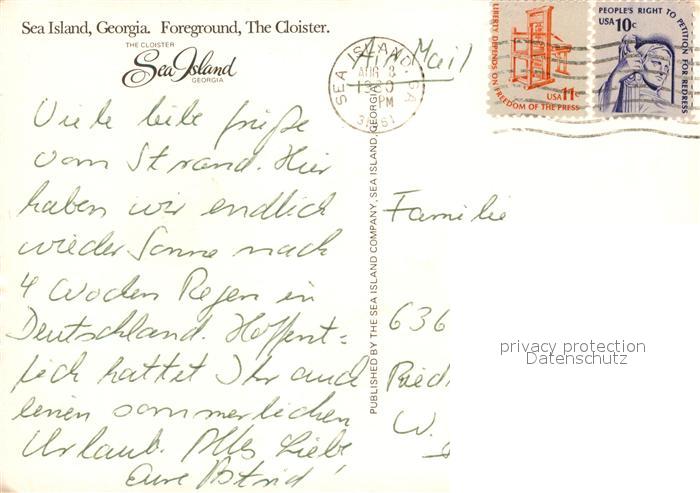 Sea Island, Georgia. Foreground, The Cloister.
THE CLOISTER
Sea Island
GEORGIA
SEA ISLAND, GA
AUG 8
PM
31561
Air Mail
LIBERTY DEPENDS ON FREEDOM OF THE PRESS
USA 11c
PEOPLE'S RIGHT TO PETITION FOR REDRESS
USA 10c
Viele liebe Grüße
vom Strand. Hier
haben wir endlich
wieder Sonne nach
4 Wochen Regen in
Deutschland. Hoffent-
lich hattet Ihr auch
einen sommerlichen
Urlaub. Alles Liebe,
Eure Astrid
PUBLISHED BY THE SEA ISLAND COMPANY, SEA ISLAND, GEORGIA
Familie
636
Ried
W.
privacy protection
Datenschutz